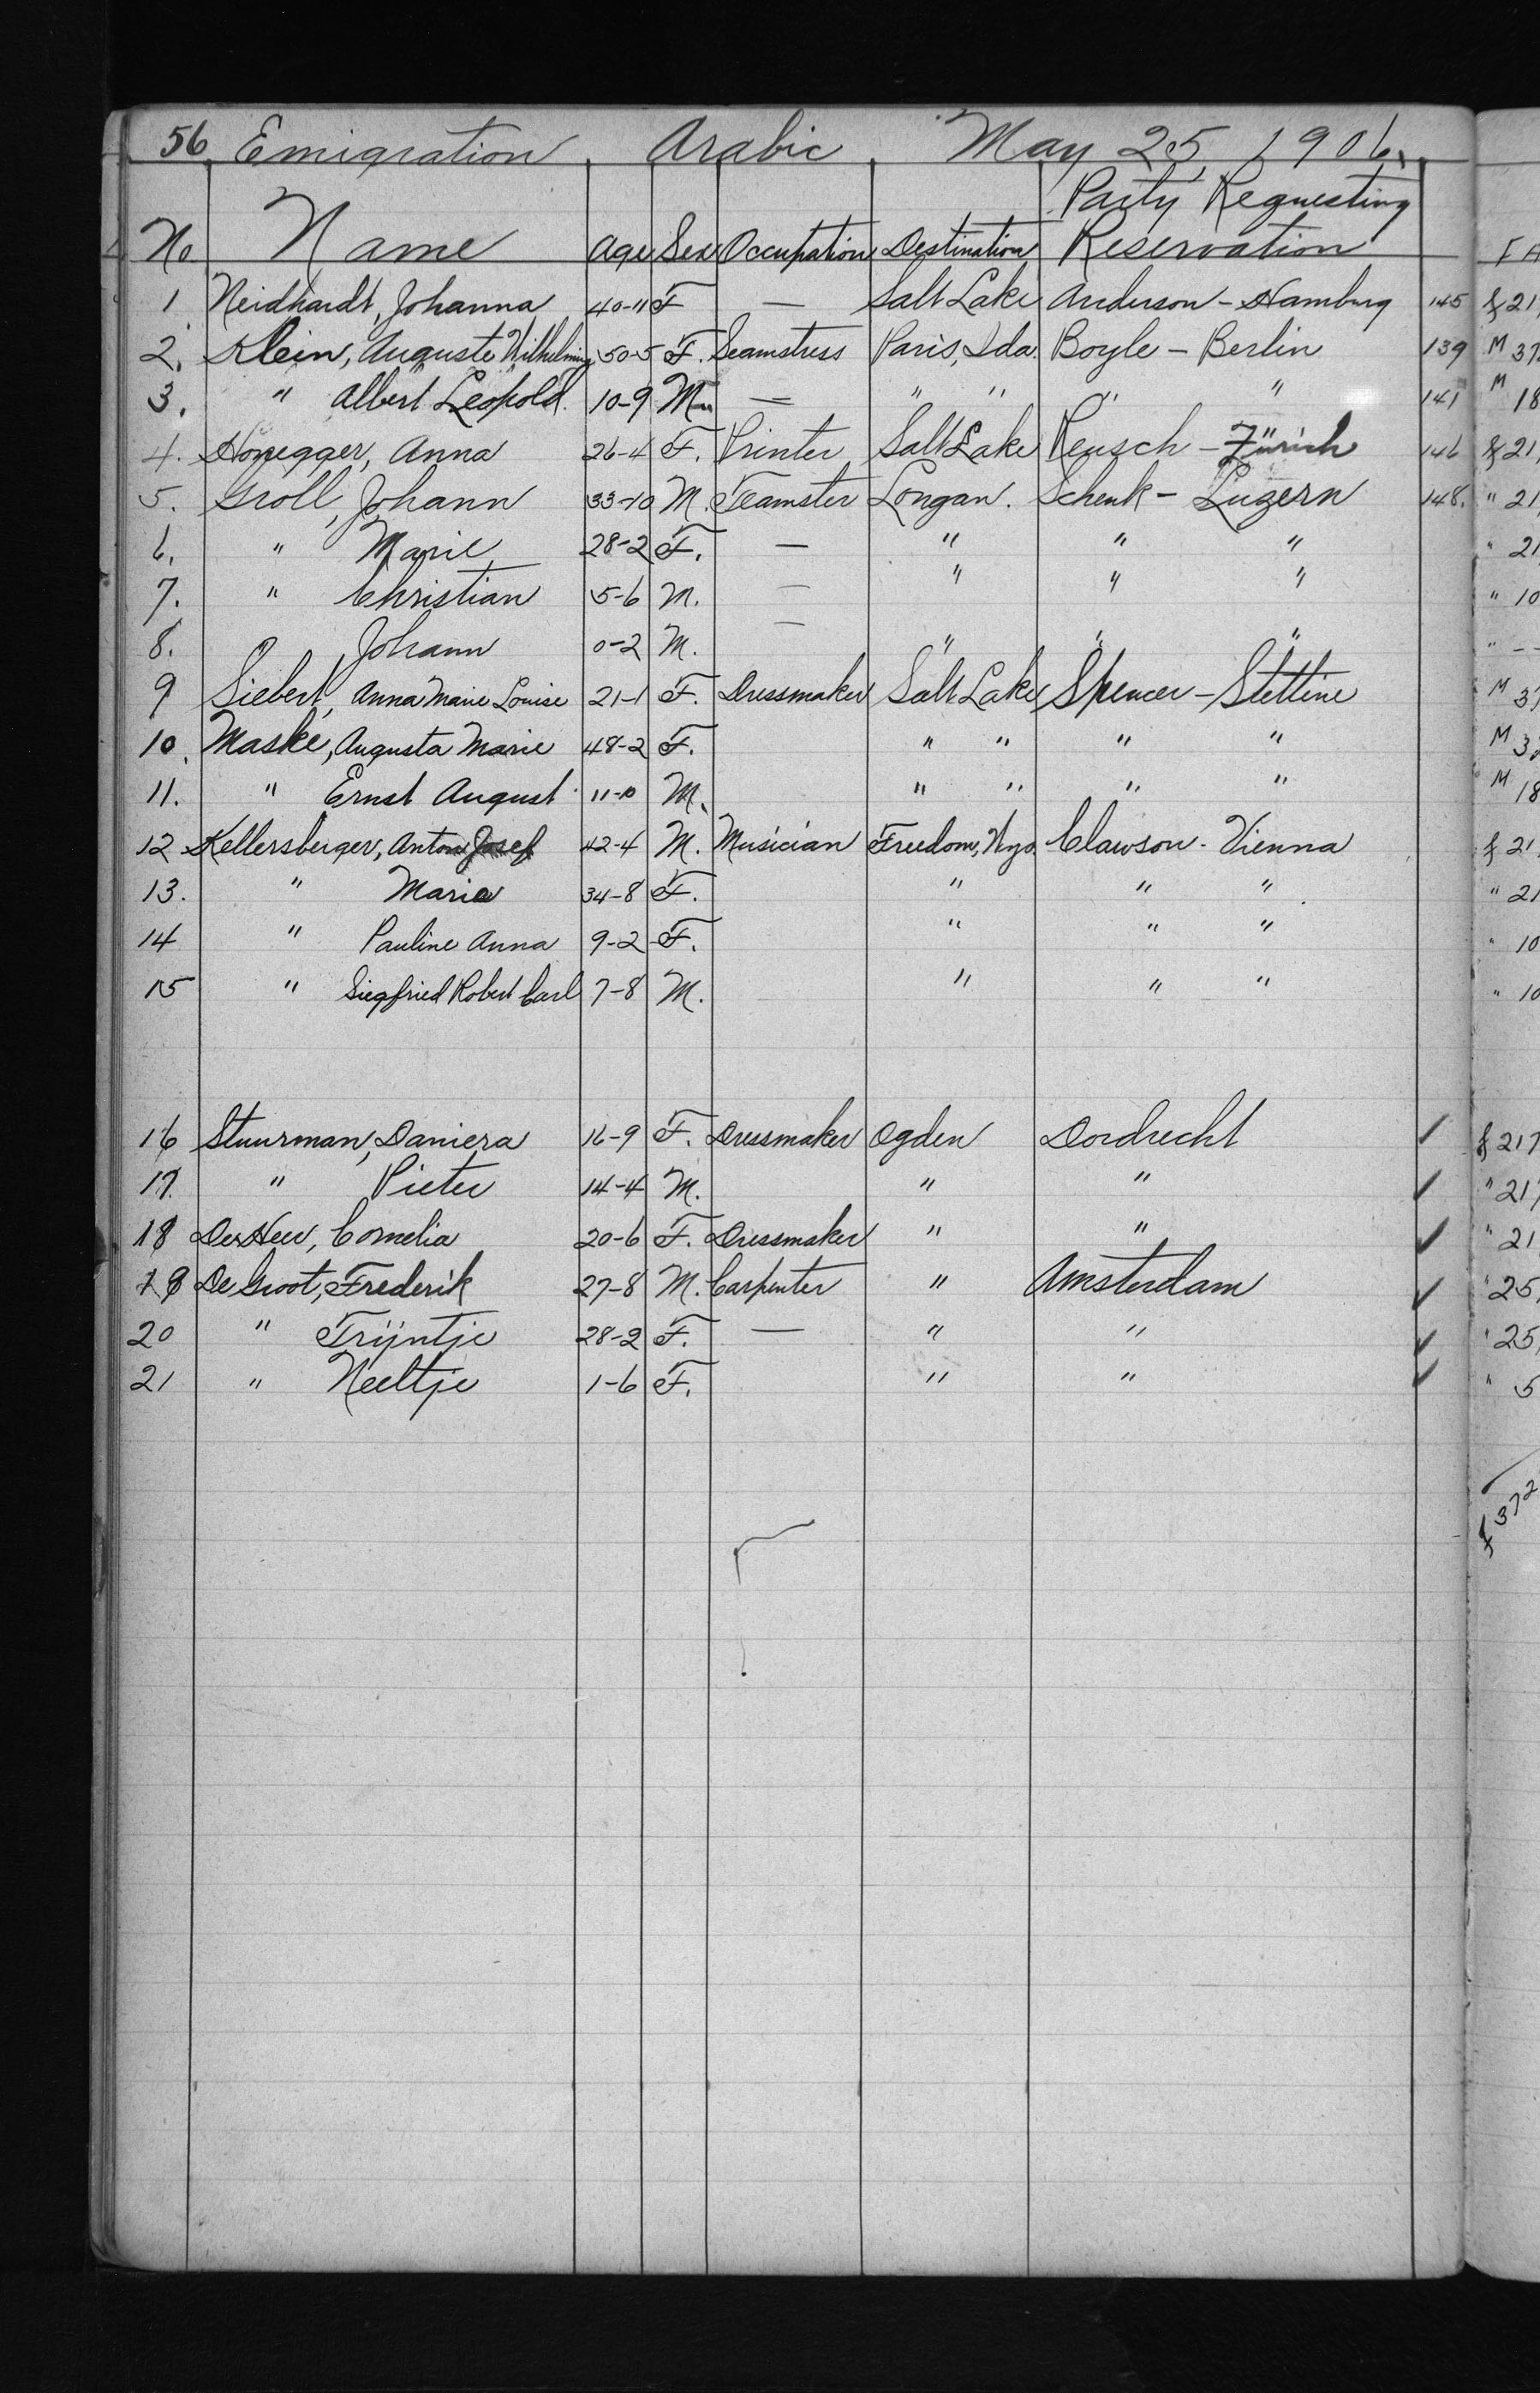 56 Emigration Arabic May 25, 1906.
Party Requesting
No Name Age Sex Occupation Destination Reservation
1 Neidhardt, Johanna 40-11 F — Salt Lake Anderson - Hamburg 145 £ 21,
2. Klein, Auguste Wilhelmine 50-5 F. Seamstress Paris, Ida. Boyle - Berlin 139 M 37
3. " Albert Leopold. 10-9 M — " " " " 141 M 18
4. Honegger, Anna 26-4 F. Printer Salt Lake Reusch - Zürich 146 £ 21,
5. Groll, Johann 33-10 M. Teamster Longan. Schenk - Luzern 148. " 21,
6. " Marie 28-2 F. — " " " " 21
7. " Christian 5-6 M. — " " " " 10
8. Johann 0-2 M. — " " " " --
9 Siebert, Anna Marie Louise 21-1 F. Dressmaker Salt Lake Spencer - Stettine M 37
10. Maske, Augusta Marie 48-2 F. " " " " M 3
11. " Ernst August 11-10 M. " " " " M 18
12 Kellersberger, Anton Josef 42-4 M. Musician Freedom, Wyo. Clawson - Vienna £ 21
13. " Maria 34-8 F. " " " " 21
14 " Pauline Anna 9-2 F. " " " " 10
15 " Siegfried Robert Carl 7-8 M. " " " " 10
16 Stuurman, Daniera 16-9 F. Dressmaker Ogden Dordrecht ✓ £ 217
17. " Pieter 14-4 M. " " ✓ " 217
18 Cornelia 20-6 F. Dressmaker " " ✓ " 21
19 De Groot, Frederik 27-8 M. Carpenter " Amsterdam ✓ " 25,
20 " Trijntje 28-2 F. — " " ✓ " 25,
21 " Neeltje 1-6 F. " " ✓ " 5
£ 372